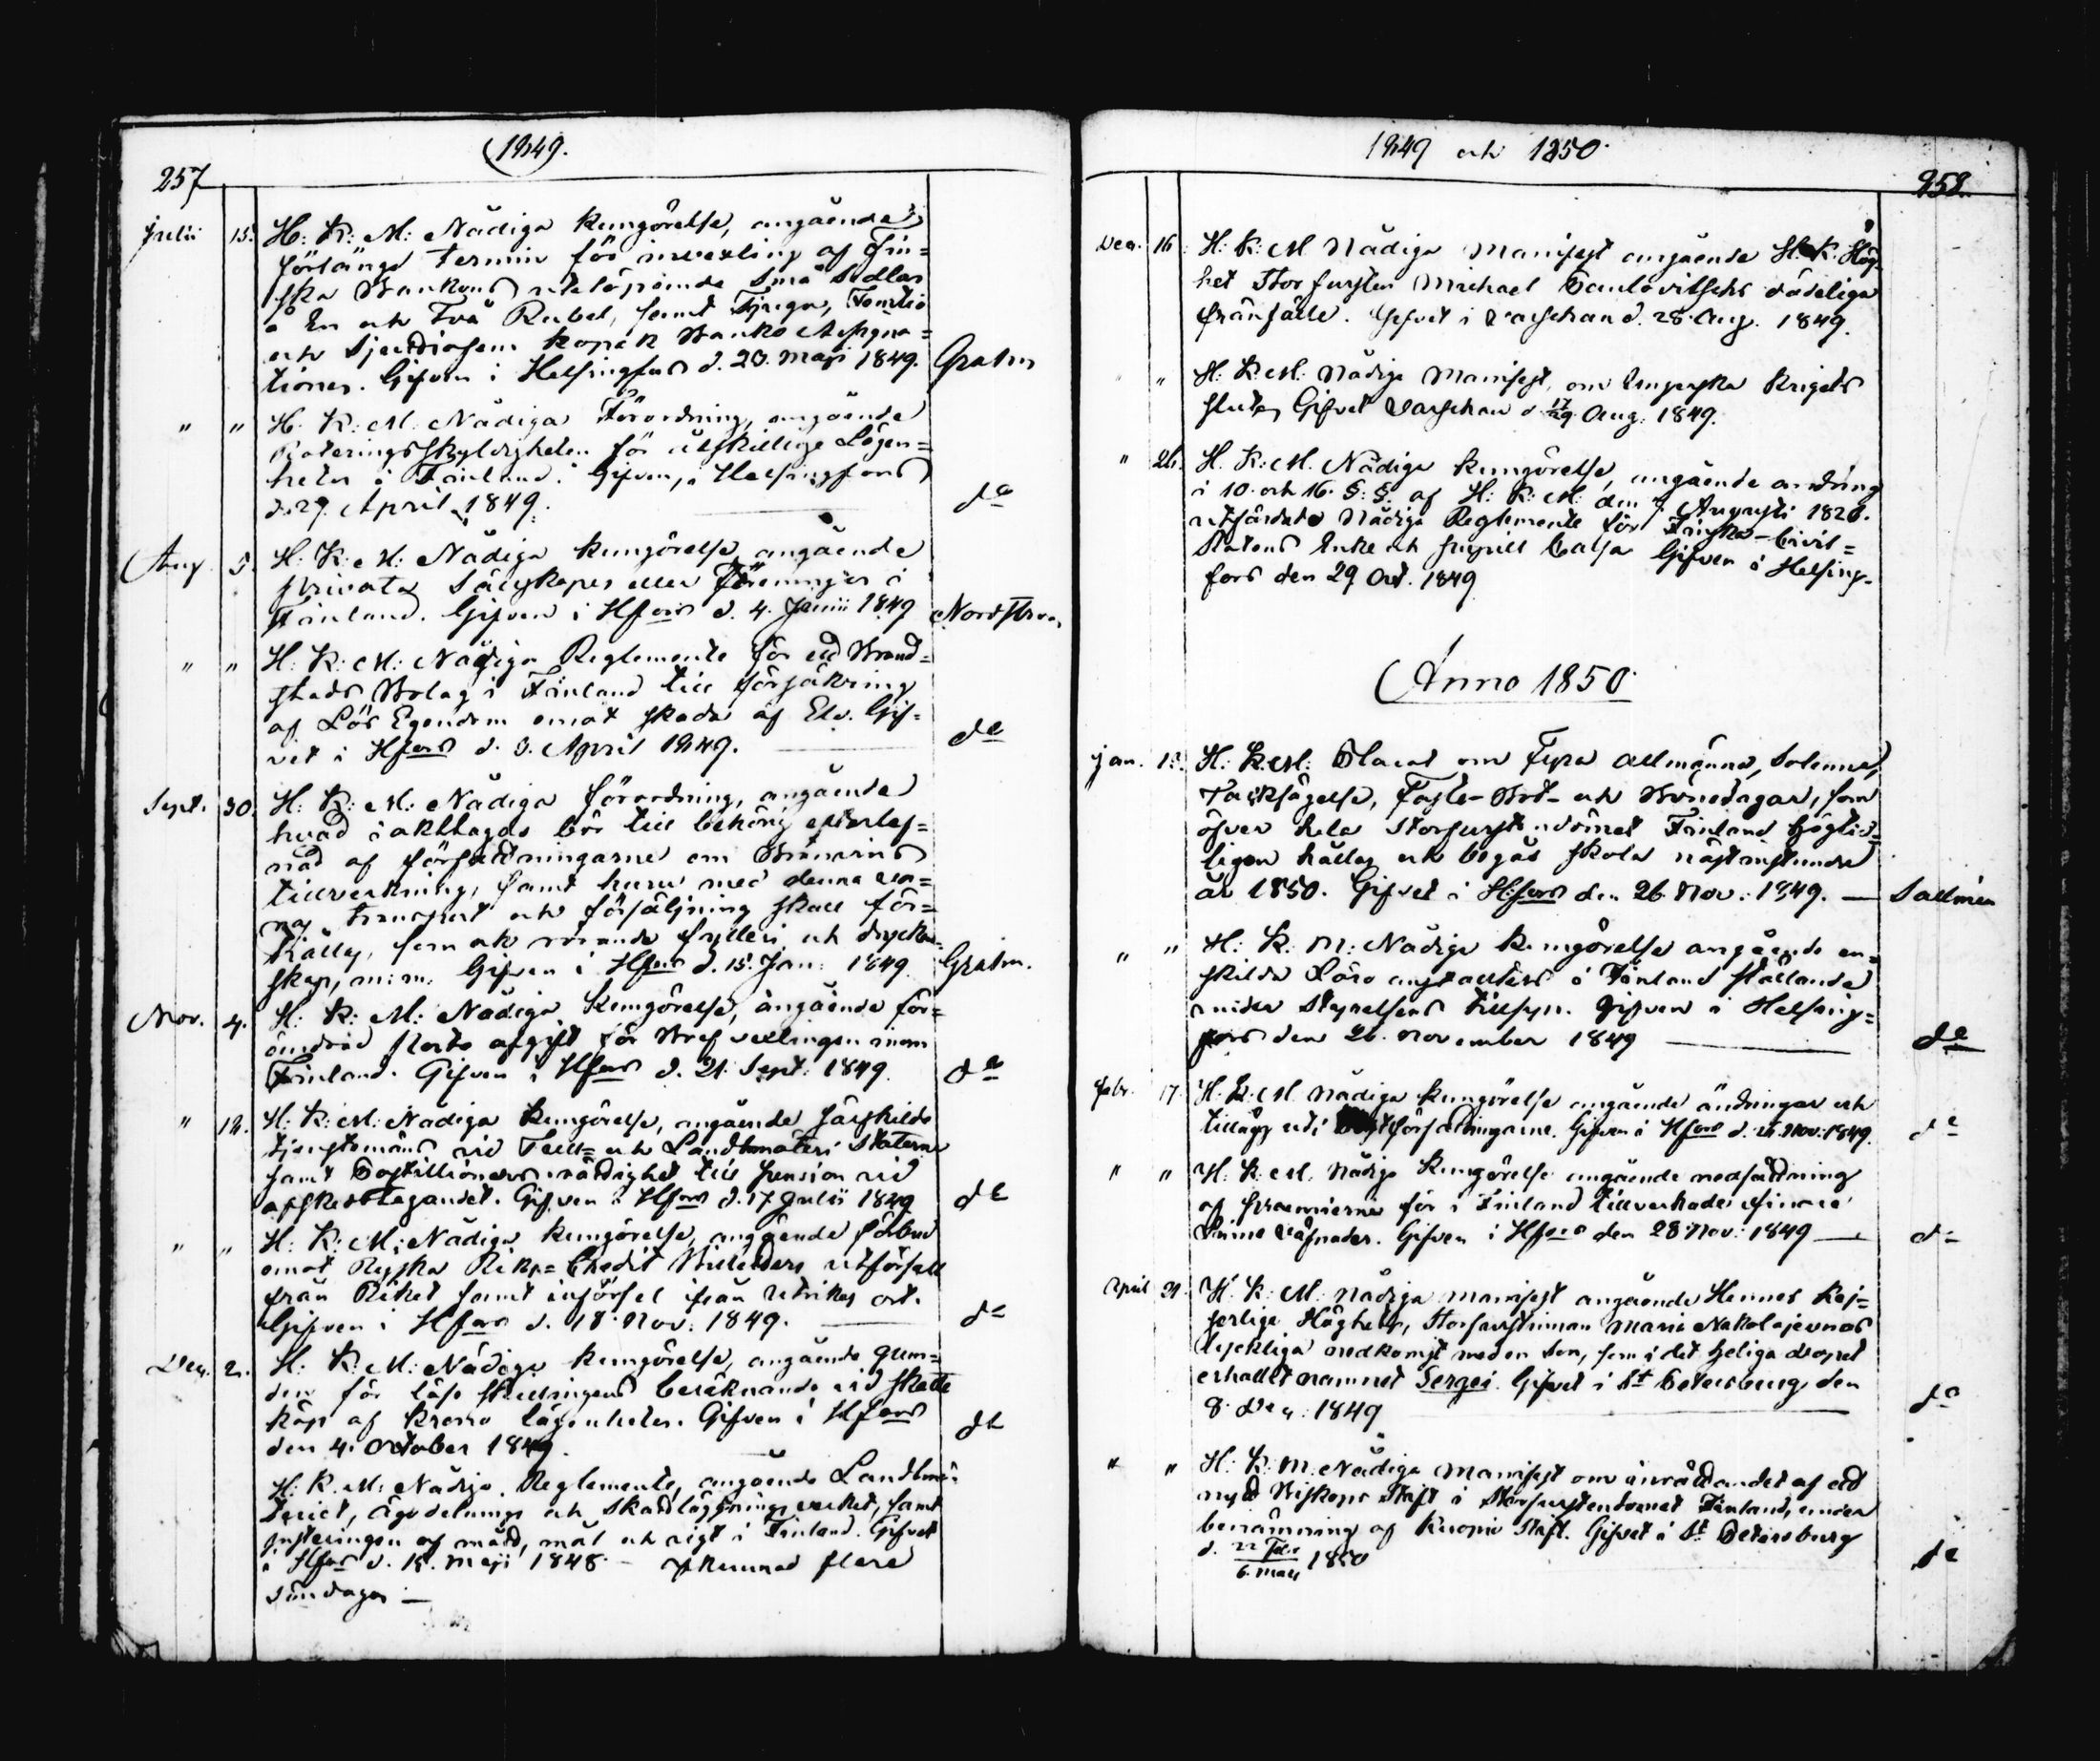 1849.
257
Julii 15. H: K: M: Nådiga kungörelse, angående
förlängd termin för invexling af Fin=
ska Bankens utelöpande Små Sedlar
à En och Två Rubel, samt Tjugu, Femtio
och Sjuttiofem kopek Banko Assigna=
tioner. Gifven i Helsingfors d. 23. Maji 1849. Grahn
" " H. K: M. Nådiga Förordning, angående
Roteringsskyldigheten för åtskillige Lägen=
heter i Finland. Gifven, i Helsingfors
d. 29 April 1849. do
Aug. 5. H: K: M: Nådiga kungörelse, angående
privata Sälskaper eller Föreningar i
Finland. Gifven i Hfors d. 4. Junii 1849 Nordström
" " H: K: M: Nådiga Reglemente för ett Brand=
stods Bolag i Finland till försäkring
af Lös Egendom emot skada af Eld. Gif=
vet i Hfors d. 3. April 1849. do
Sept. 30. H: K: M: Nådiga förordning, angående
hvad iakttagas bör till behörig efterlef=
nad af författningarne om Bränvins
tillverkning, samt huru med denna va=
ras transport och försäljning skall för=
hållas, som ock rörande fylleri och dryckens=
skap, m: m. Gifven i Hfors d. 15. Jan: 1849 Grahn.
Nov. 4. H: K: M: Nådiga Kungörelse, angående för=
ändrad Porto afgift för Brefvexlingen inom
Finland. Gifven i Hfors d. 21. Sept: 1849. do
" 18. H: K: M: Nådiga Kungörelse, angående särskilde
tjenstemäns vid Tull= och Landtmäteri Staterne
samt Postillioners rättighet till pension vid
afskedstagandet. Gifven i Hfors d. 17 Julii 1849 do
" " H: K: M: Nådiga kungörelse, angående förbud
emot Ryska Riks= Credit Billetters utförsel
från Riket samt införsel från utrikes ort.
Gifven i Hfors d. 18. Nov. 1849. do
Dec. 2. H: K: M: Nådiga kungörelse, angående grun=
den för löse skillingens beräknande vid skatte
köp af krono lägenheter. Gifven i Hfors
den 4. October 1849. do
H: K: M: Nådiga Reglemente, angående Landtmä=
teriet, Ägodelnings och Skattläggningsverket, samt
justeringen af mått, mål och vigt i Finland. Gifvet
i Hfors d. 15. Maji 1848. – flere
Söndagar —
1849 och 1850.
258.
Dec. 16. H: K: M Nådiga Manifest angående H. K. Hög=
het Storfursten Michael Paulovitschs dödeliga
frånfälle. Gifvet i Varschau d. 28. Aug. 1849.
" " H: K: M: Nådiga Manifest, om Ungerska krigets
slut, Gifvet Varschau d 17/29 Aug. 1849.
" 26. H. K: M. Nådiga kungörelse, angående ändring
i 10. och 16. §. §. af H: K: M: den 7. Augusti 1826.
utfärdade Nådiga Reglemente för Finska-Civil=
Statens Enke och pupill Cassa Gifven i Helsing=
fors den 29 Oct. 1849
Anno 1850.
Jan. 13. H: K: M: Placat om Fyra Allmänna, Solenna,
Tacksägelse, Faste- Bot- och Bönedagar, som
öfver hela Storfurstendömet Finland högtid=
ligen hållas och begås skola nästinstundande
år 1850. Gifvet i Hfors den 26. Nov: 1849. — Sallmén
" " H: K: M: Nådiga kungörelse angående en=
skilda Läro anstalters i Finland ställande
under Styrelsens tillsyn. Gifven i Helsing=
fors den 26. November 1849 do
Febr. 17. H: K: M Nådiga kungörelse angående ändringar och
tillägg uti författningarne. Gifven i Hfors d. 26. Nov: 1849. do
" " H. K. M. Nådiga kungörelse angående nedsättning
af premierne för i Finland tillverkade finare
Linne väfnader. Gifven i Hfors den 28 Nov: 1849 — do
April 21. H. K. M. Nådiga Manifest angående Hennes Kej=
serliga Höghets, Storfurstinnan Maria Nikolajevnas
lyckliga nedkomst med en Son, som i det heliga dopet
erhållit namnet Sergei. Gifvet i St Petersburg den
8. Dec: 1849 do
" " H: K: M: Nådiga Manifest om inrättandet af ett
nytt Biskops Stift i Storfurstendömet Finland, under
benämning af Kuopio Stift. Gifvet i St Petersburg
d. 22 Febr / 6. Mars 1850 do